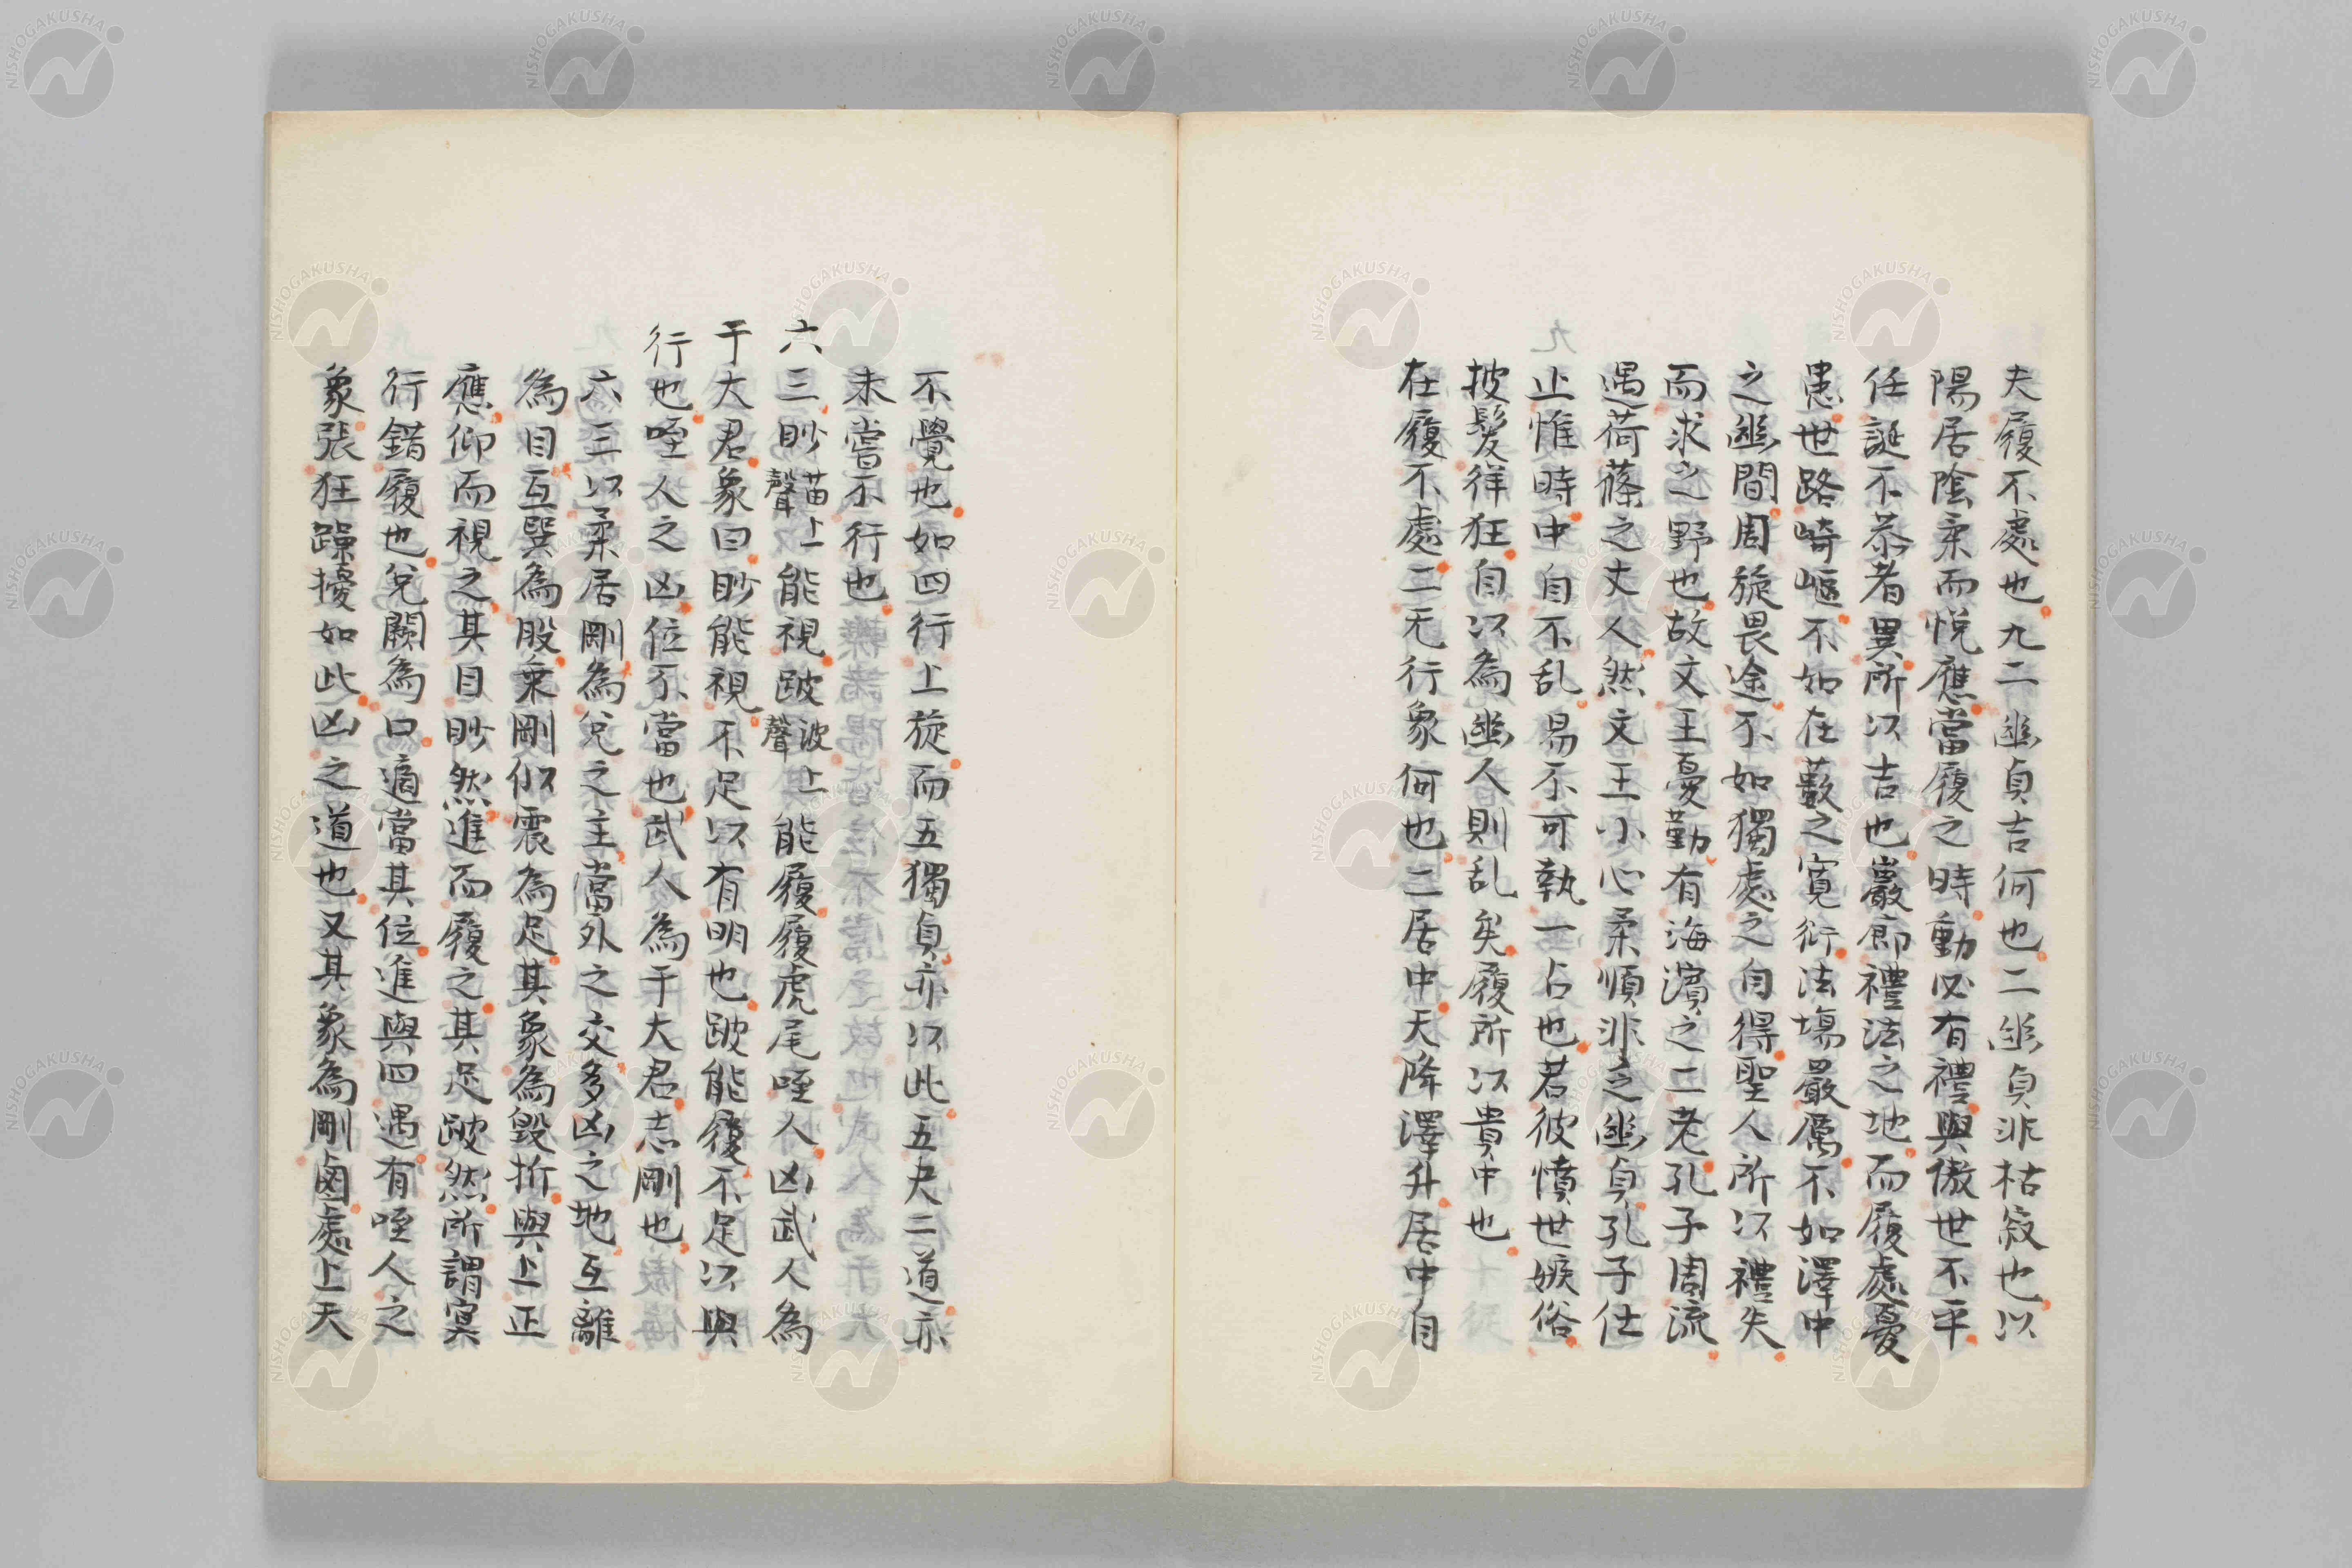 夫履不處也九二幽貞吉何也二幽貞非枯寂也以
陽居陰柔而悅應當履之時動必有禮與傲世不平
任誕不恭者異所以吉也巖廊禮法之地而履處憂
患世路崎嶇不如在藪之寬衍法塲嚴厲不如澤中
之幽間周旋畏途不如獨處之自得聖人所以禮失
而求之野也故文王憂勤有海濱之二老孔子周流
遇荷蓧之丈人然文王小心柔順非之幽貞孔子仕
止惟時中自不乱易不可執一占也若彼憤世嫉俗
披髮徉狂自以為幽人則乱矣履所以貴中也
在履不處二无行象何也二居中天降澤升居中自
不覺也如四行上旋而五獨貞亦以此五夬二道亦
未嘗不行也
六三眇苗上聲能視跛波上聲能履履虎尾咥人凶武人為
于大君象曰眇能視不足以有明也跛能履不足以與
行也咥人之凶位不當也武人為于大君志剛也
六三以柔居剛為兌之主當外之交多凶之地互離
為目互巽為股乗剛似震為足其象為毀折與上正
應仰而視之其目眇然進而履之其足跛然所謂冥
行錯履也兌闕為口適當其位進與四遇有咥人之
象張狂躁擾如此凶之道也又其象為剛鹵處上天